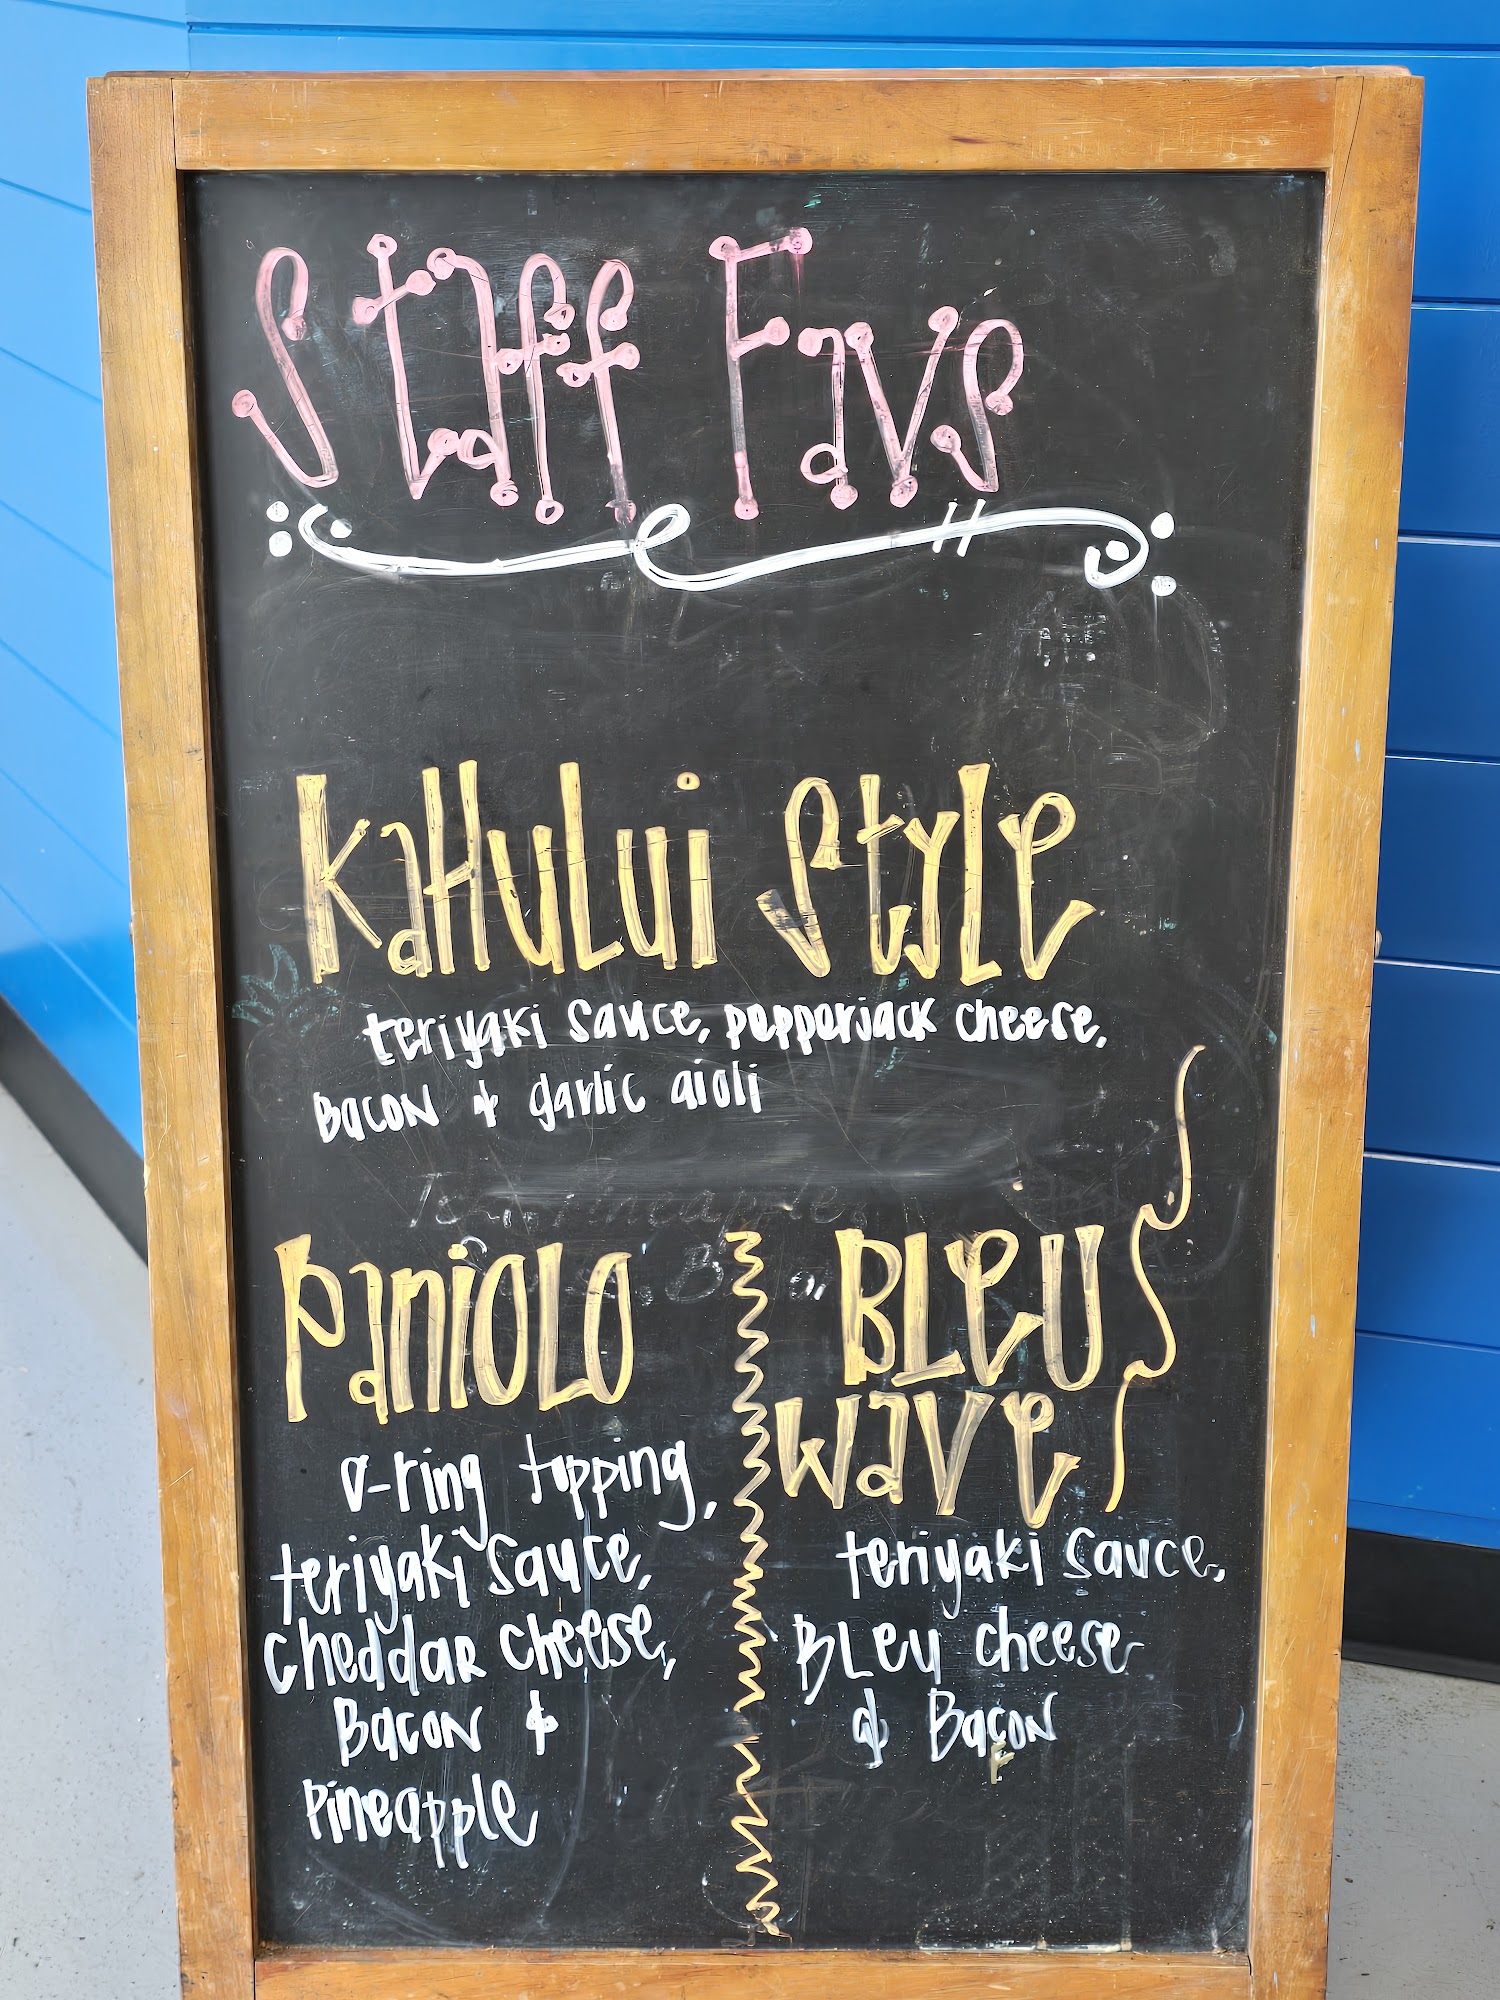 Staff Favs
Kahului Style
teriyaki sauce, pepperjack cheese,
Bacon & garlic aioli
Paniolo
o-ring topping,
teriyaki sauce,
cheddar cheese,
Bacon &
Pineapple
Bleu
Wave
teriyaki sauce,
Bleu cheese
& Bacon